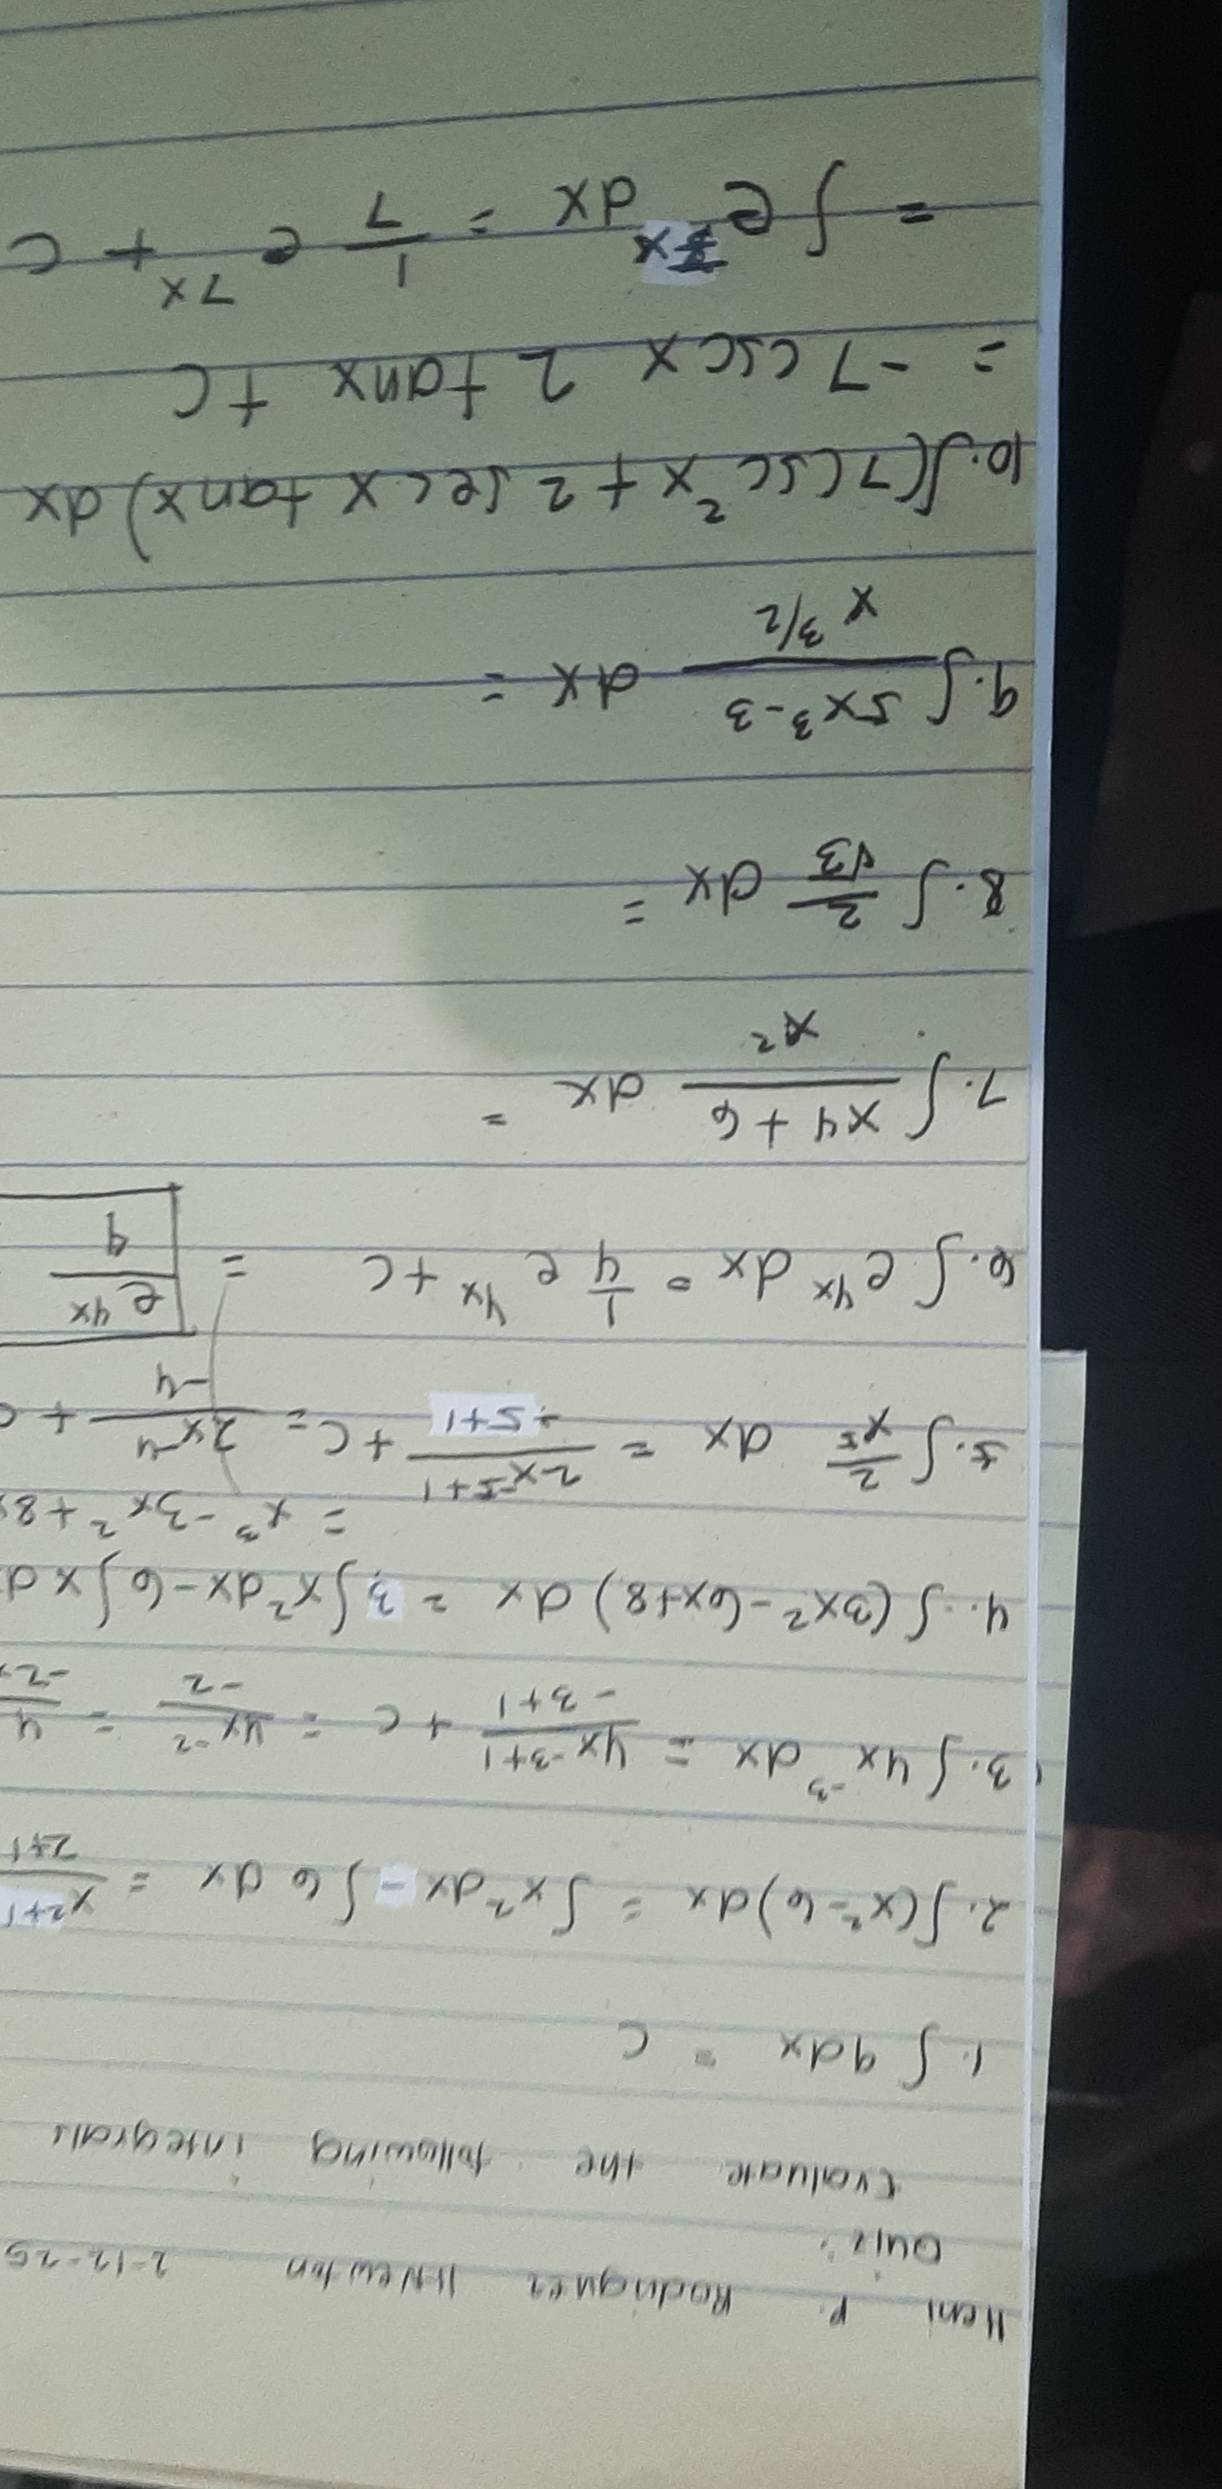 Heni P. Rodriguez 11-Newton 2-12-25
Quiz:
Evaluate the following integrals
1. ∫ 9dx = C
2. ∫(x²-6)dx = ∫x²dx - ∫6 dx = x^(2+1)/(2+1)
3. ∫4x⁻³dx = 4x^(-3+1)/(-3+1) + C = 4x⁻²/-2 = 4/-2
4. ∫(3x²-6x+8) dx = 3∫x²dx-6∫x d
= x³ -3x² +8x
5. ∫ 2/x⁵ dx = 2x^(-5+1)/(-5+1) + C = 2x⁻⁴/-4 + C
6. ∫ e^(4x) dx = 1/4 e^(4x) + C = e^(4x)/4
7. ∫ (x4+6)/x² dx =
8. ∫ 2/√3 dx =
9. ∫ (5x³-3)/x^(3/2) dx =
10. ∫(7csc²x+2 sec x tanx) dx
= -7 csc x 2 tanx + C
= ∫ e^x dx = 1/7 e^(7x) + C